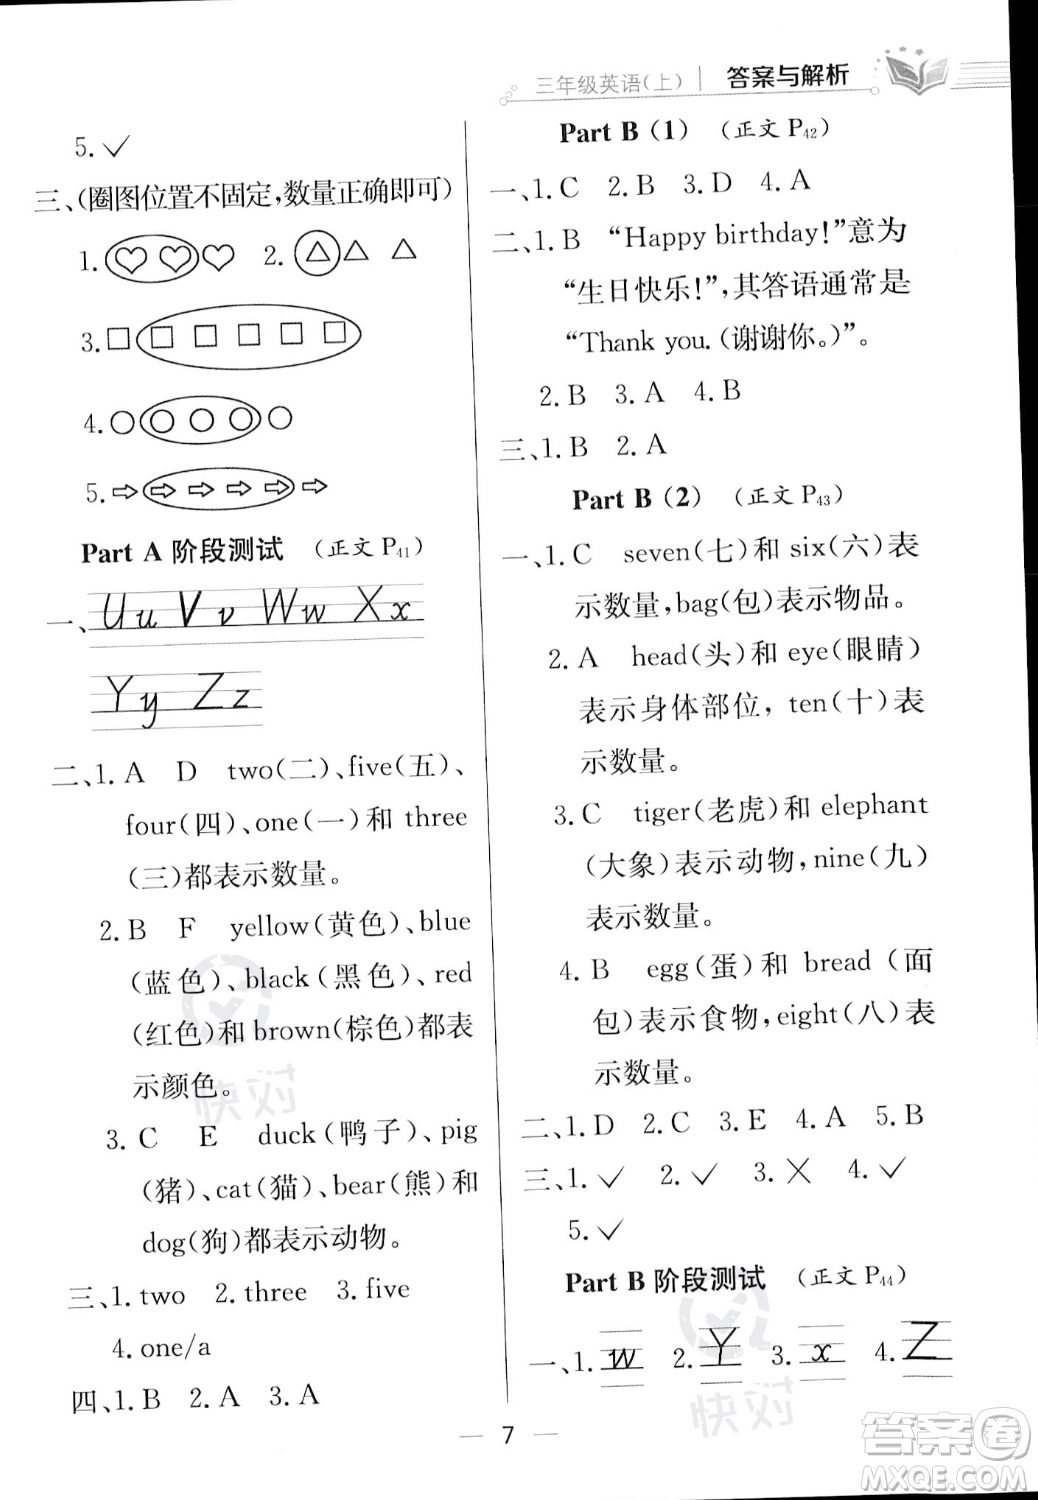 三年级英语(上) 答案与解析
5.✓
三、(圈图位置不固定,数量正确即可)
1.
2.
3.
4.
5.
Part A 阶段测试 (正文 P41)
一、Uu Vv Ww Xx
Yy Zz
二、1. A D two(二)、five(五)、
four(四)、one(一)和 three
(三)都表示数量。
2. B F yellow(黄色)、blue
(蓝色)、black(黑色)、red
(红色)和 brown(棕色)都表
示颜色。
3. C E duck(鸭子)、pig
(猪)、cat(猫)、bear(熊)和
dog(狗)都表示动物。
三、1. two 2. three 3. five
4. one/a
四、1. B 2. A 3. A
Part B (1) (正文 P42)
一、1. C 2. B 3. D 4. A
二、1. B “Happy birthday!”意为
“生日快乐!”,其答语通常是
“Thank you.(谢谢你。)”。
2. B 3. A 4. B
三、1. B 2. A
Part B (2) (正文 P43)
一、1. C seven(七)和 six(六)表
示数量,bag(包)表示物品。
2. A head(头)和 eye(眼睛)
表示身体部位, ten(十)表
示数量。
3. C tiger(老虎)和 elephant
(大象)表示动物,nine(九)
表示数量。
4. B egg(蛋)和 bread(面
包)表示食物,eight(八)表
示数量。
二、1. D 2. C 3. E 4. A 5. B
三、1.✓ 2.✓ 3.✗ 4.✓
5.✓
Part B 阶段测试 (正文 P44)
一、1. w 2. Y 3. x 4. Z
7
快对
快对
答案圈
MXQE.COM